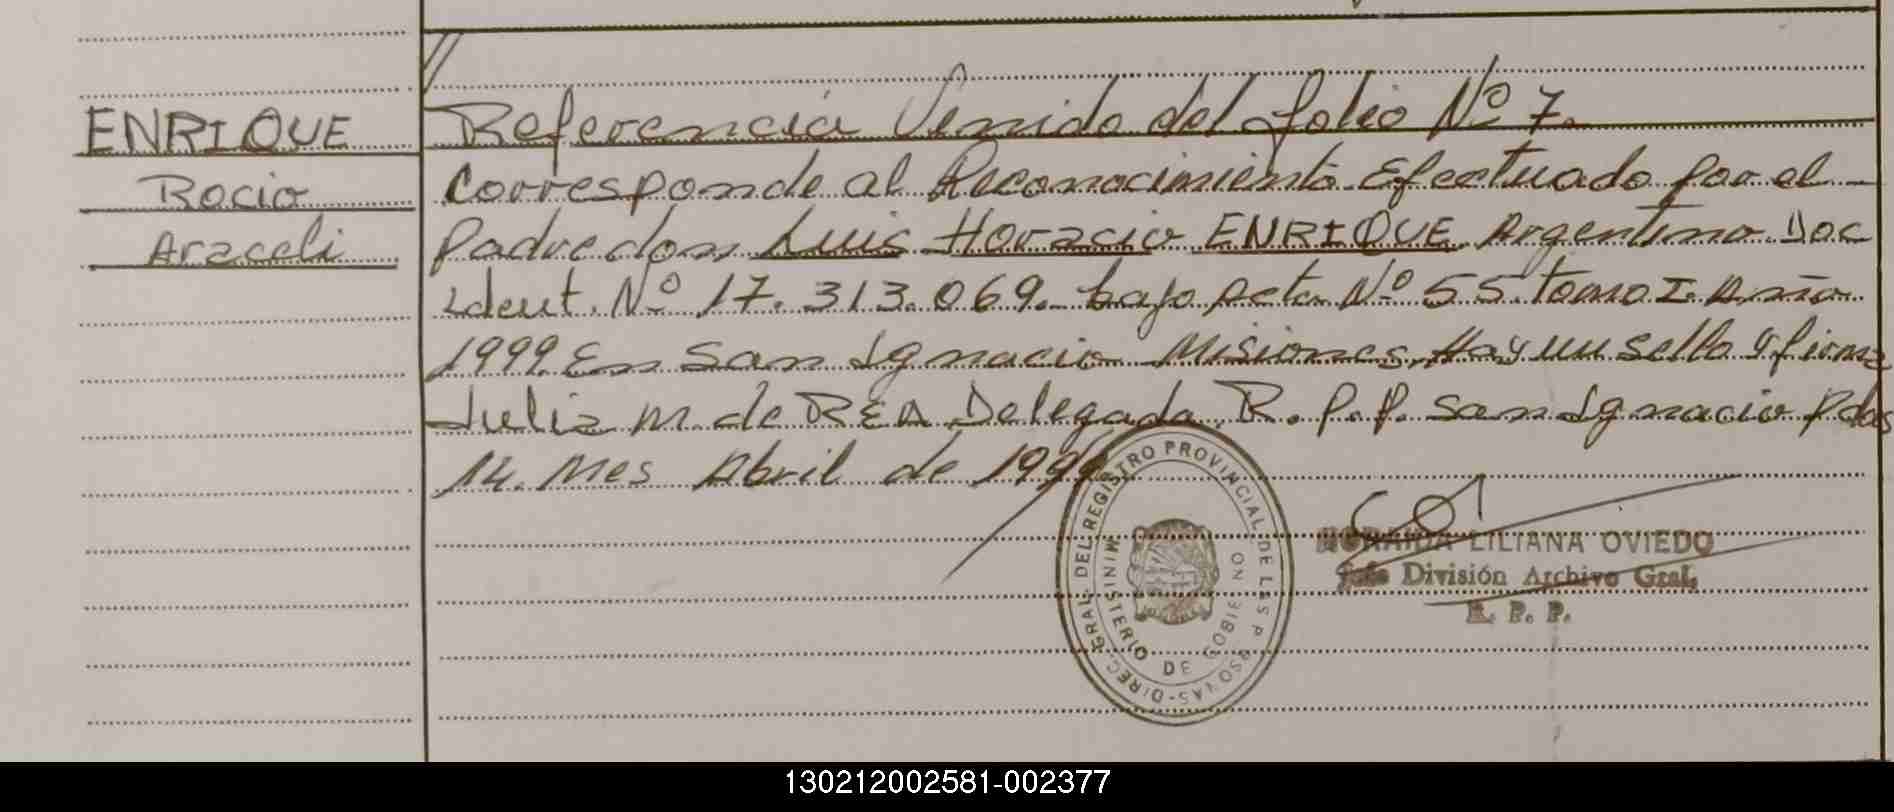 ENRIQUE
Rocio
Araceli
Referencia Venido del folio Nº 7.
Corresponde al Reconocimiento Efectuado por el
padre don Luis Horacio ENRIQUE Argentino Doc
Ident. Nº 17.313.069. bajo acta Nº 55 tomo I. Año
1999. En San Ignacio Misiones. Hay un sello y firma
Julia M. de REA Delegada R.P.P. San Ignacio Pdas
14. Mes Abril de 1999
DIREC. GRAL. DEL REGISTRO PROVINCIAL DE LAS PERSONAS
MINISTERIO DE GOBIERNO
LILIANA OVIEDO
Jefe División Archivo Gral.
R. P. P.
130212002581-002377